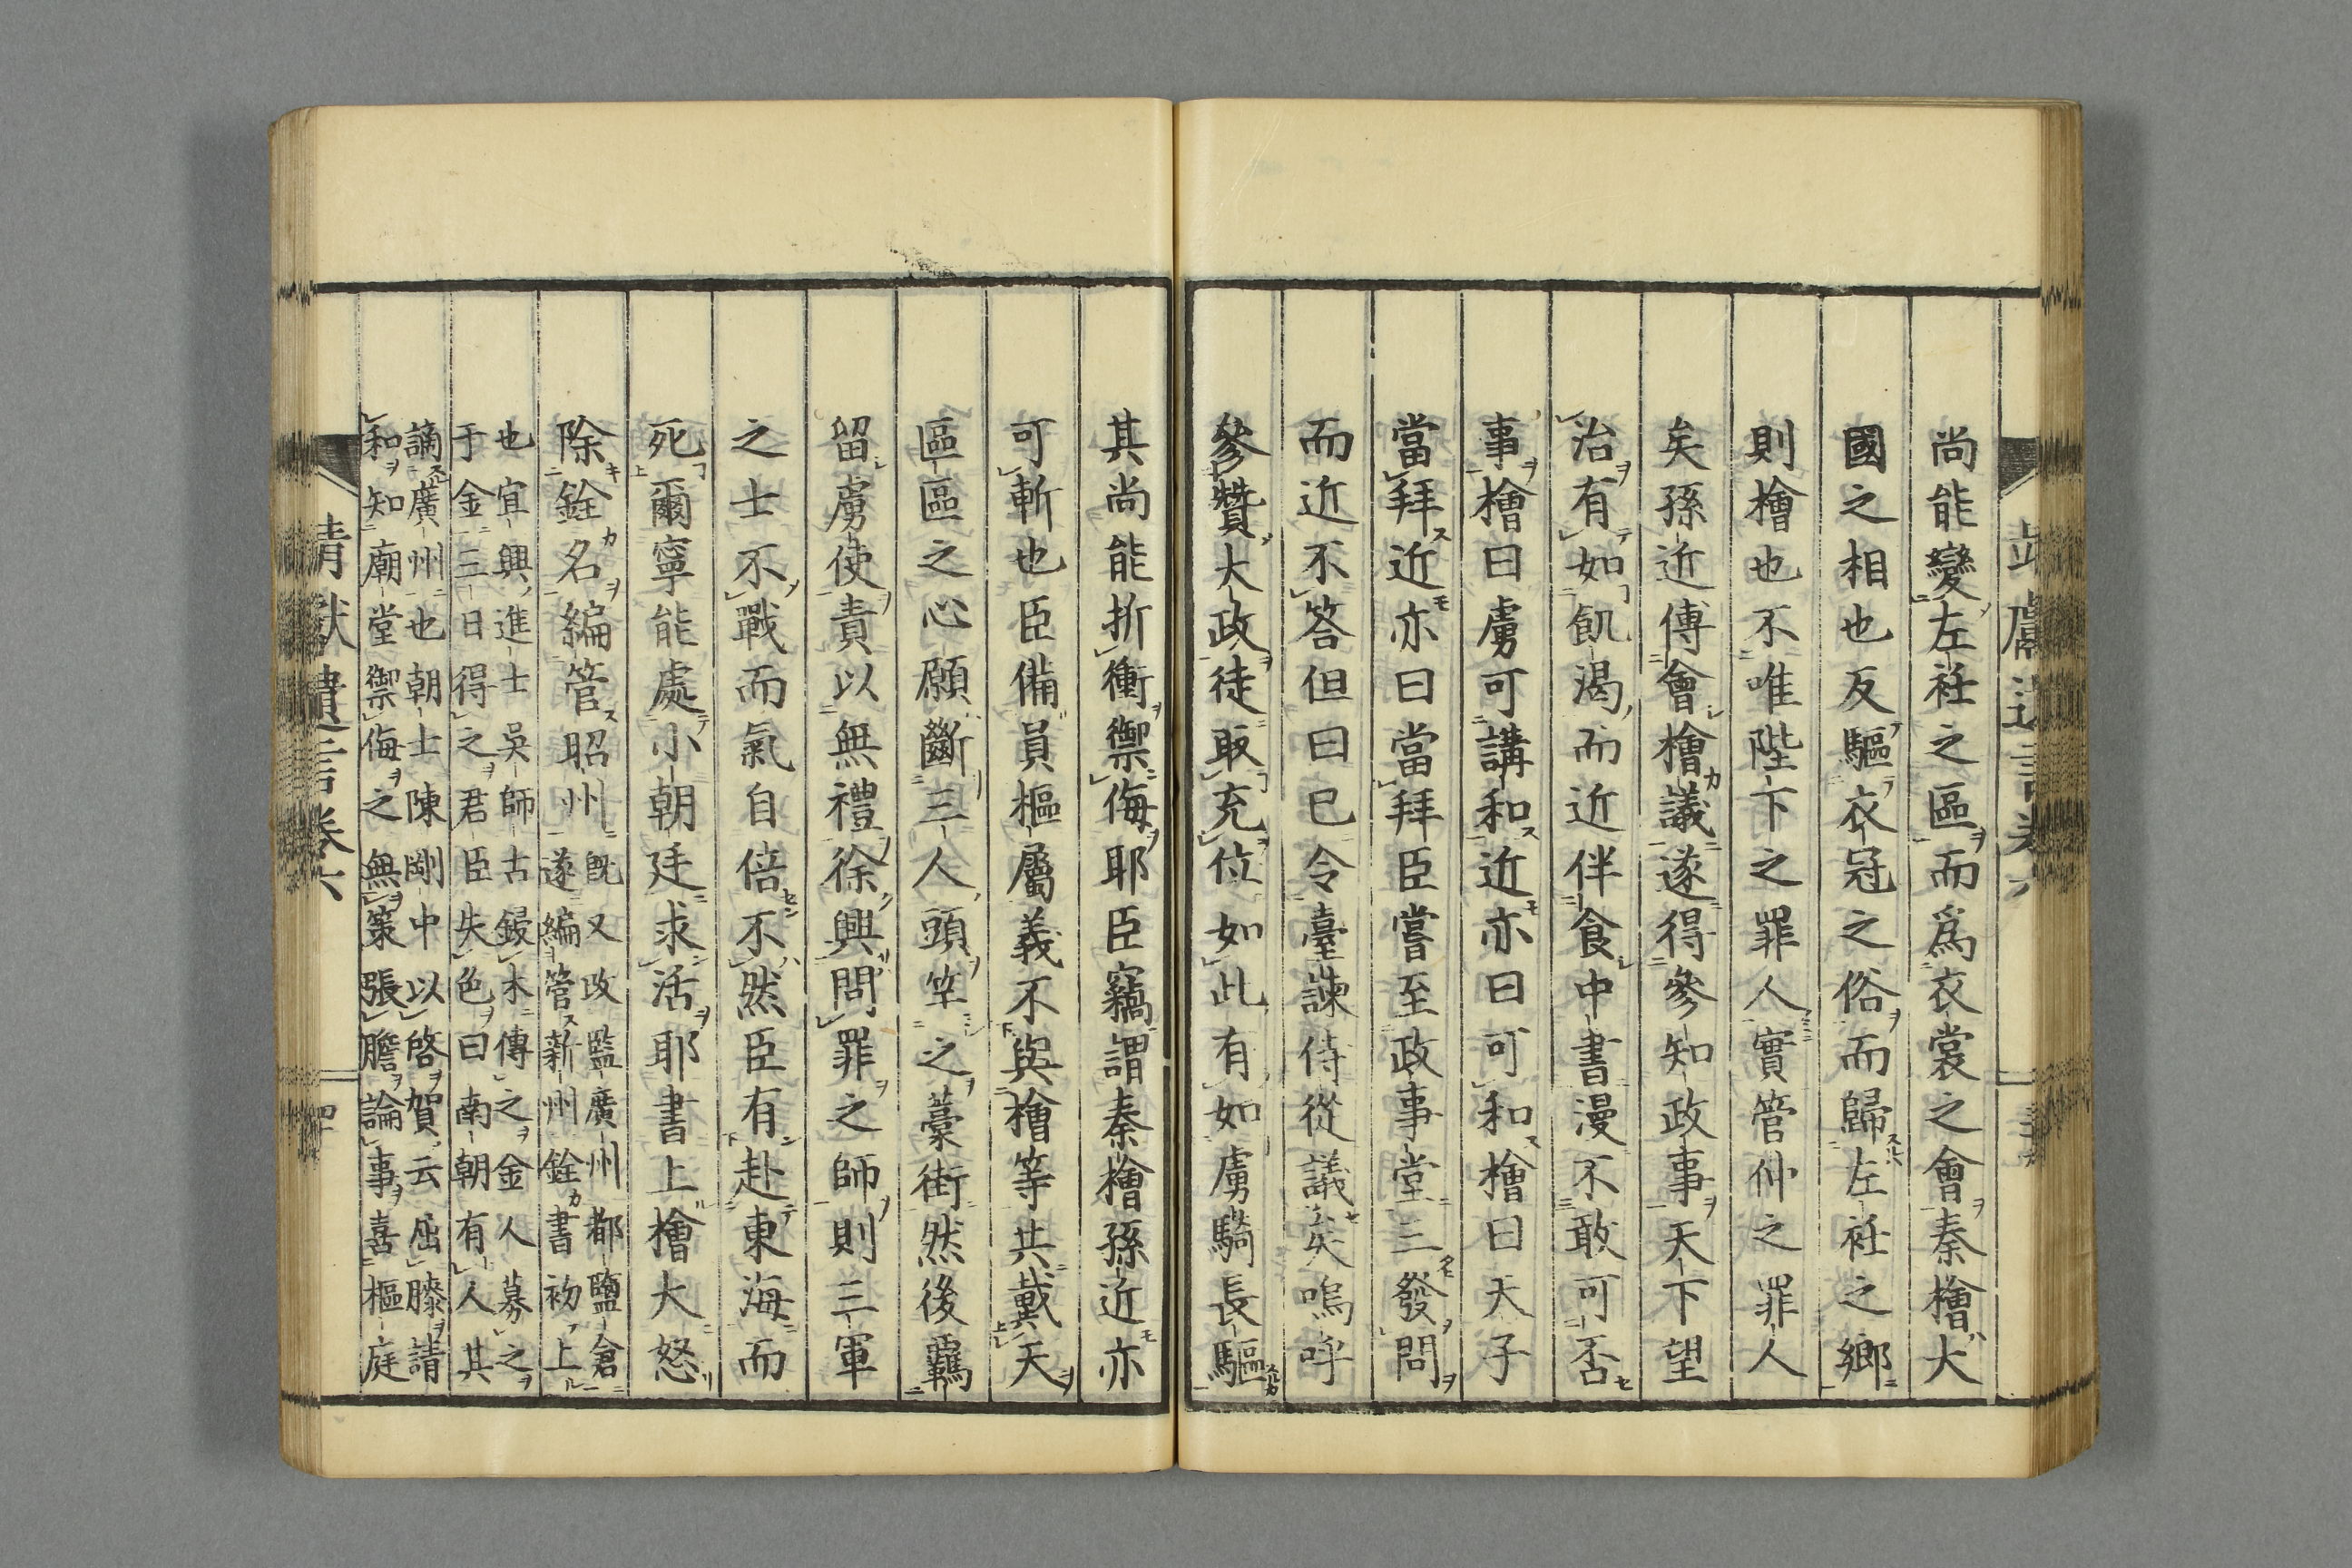 尚能變左衽之區而爲衣裳之會秦檜大
國之相也反驅衣冠之俗而歸左衽之鄕
則檜也不唯陛下之罪人實管仲之罪人
矣孫近傅會檜議遂得參知政事天下望
治有如飢渴而近伴食中書漫不敢可否
事檜曰虜可講和近亦曰可和檜曰天子
當拜近亦曰當拜臣嘗至政事堂三發問
而近不答但曰已令臺諫侍從議矣嗚呼
參贊大政徒取充位如此有如虜騎長驅
其尚能折衝禦侮耶臣竊謂秦檜孫近亦
可斬也臣備員樞屬義不與檜等共戴天
區區之心願斷三人頭竿之藁街然後羈
留虜使責以無禮徐興問罪之師則三軍
之士不戰而氣自倍不然臣有赴東海而
死爾寧能處小朝廷求活耶書上檜大怒
除銓名編管昭州
既又改監廣州都鹽倉
遂編管新州銓書初上
也宜興進士吳師古鋟木傳之金人募之
于金三日得之君臣失色曰南朝有人其
謫廣州也朝士陳剛中以啓賀云屈膝請
和知廟堂禦侮之無策張膽論事喜樞庭
靖獻遺言卷六